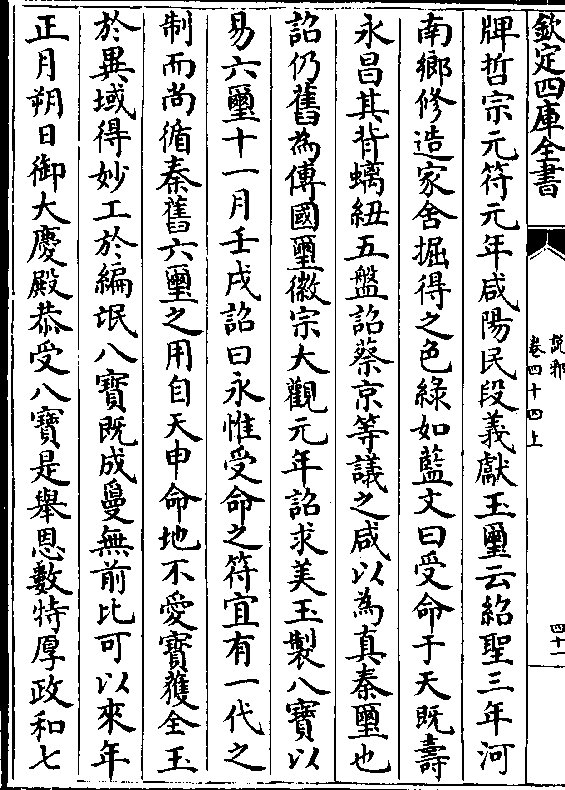 欽定四庫全書
說郛
卷四十四上
四十一
牌哲宗元符元年咸陽民段義獻玉璽云紹聖三年河
南鄉修造家舍掘得之色綠如藍文曰受命于天既壽
永昌其背螭紐五盤詔蔡京等議之咸以為真秦璽也
詔仍舊為傳國璽徽宗大觀元年詔求美玉製八寶以
易六璽十一月壬戌詔曰永惟受命之符宜有一代之
制而尚循秦舊六璽之用自天申命地不愛寶獲全玉
於異域得妙工於編氓八寶既成曼無前比可以來年
正月朔日御大慶殿恭受八寶是舉恩數特厚政和七